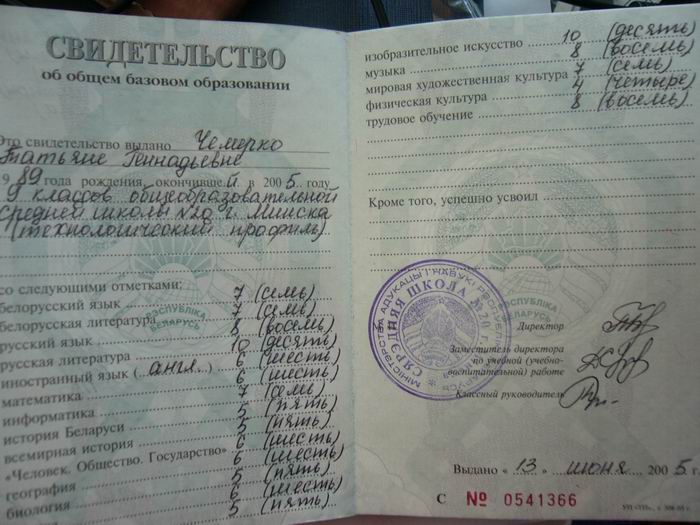 СВИДЕТЕЛЬСТВО
об общем базовом образовании
Это свидетельство выдано Чемерко
Татьяне Геннадьевне
9 89 года рождения, окончивше й в 200 5 году
9 классов общеобразовательной
средней школы №20 г. Минска
(технологический профиль)
со следующими отметками:
белорусский язык 7 (семь)
белорусская литература 7 (семь)
русский язык 8 (восемь)
русская литература 10 (десять)
иностранный язык (англ.) 6 (шесть)
математика 6 (шесть)
информатика 7 (семь)
история Беларуси 5 (пять)
всемирная история 5 (пять)
"Человек. Общество. Государство" 6 (шесть)
география 6 (шесть)
биология 5 (пять)
6 (шесть)
5 (пять)
РЭСПУБЛІКА
БЕЛАРУСЬ
изобразительное искусство 10 (десять)
музыка 8 (восемь)
мировая художественная культура 7 (семь)
физическая культура 4 (четыре)
трудовое обучение 8 (восемь)
Кроме того, успешно усвоил
РЭСПУБЛІКА
БЕЛАРУСЬ
МІНІСТЭРСТВА АДУКАЦЫІ І НАВУКІ РЭСПУБЛІКІ
СЯРЭДНЯЯ ШКОЛА № 20 г.
Директор
Заместитель директора
по учебной (учебно-
воспитательной) работе
Классный руководитель
Выдано « 13 » июня 200 5 г.
С № 0541366